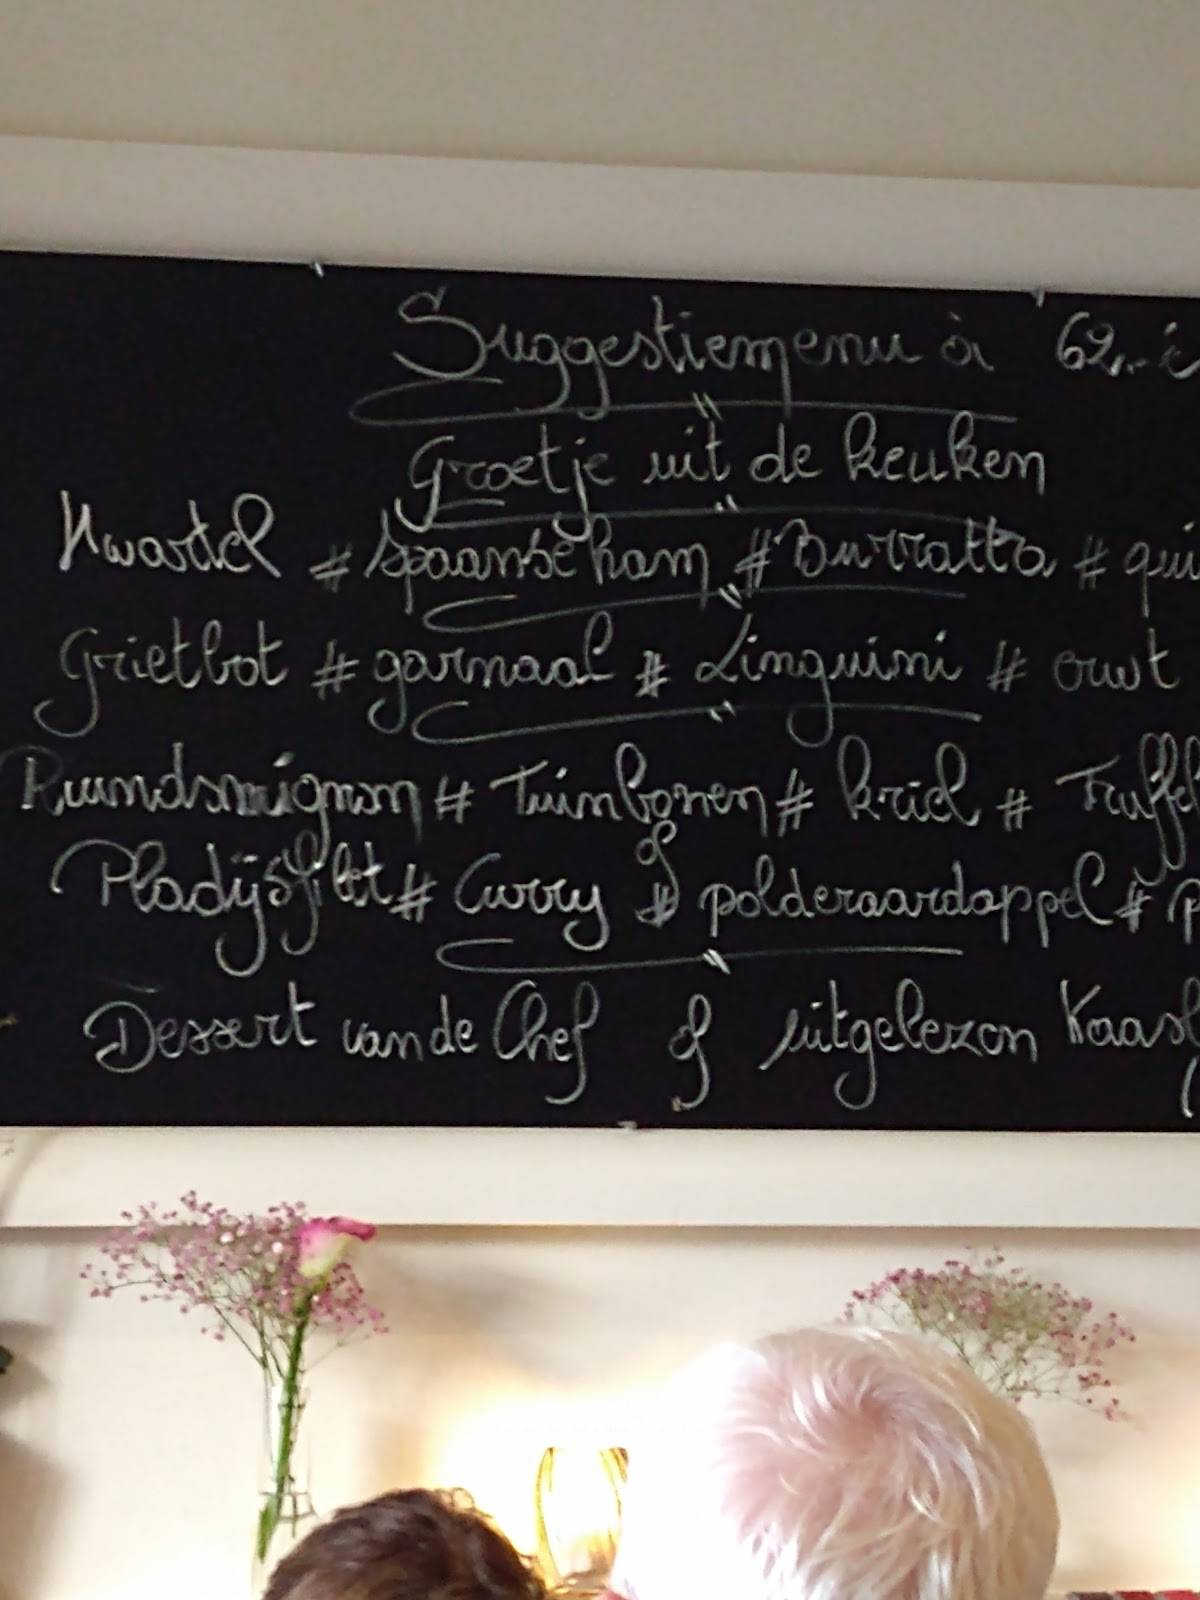 Suggestiemenu à 62,-
Groetje uit de keuken
Kwartel # Spaanse ham # Burratta # qui
Grietbot # garnaal # Linguini # ouwt
Rundsmignon # Tuinbonen # kriel # Truffel
of
Pladijsfilet # Curry # polderaardappel #
Dessert van de Chef of uitgelezen Kaas